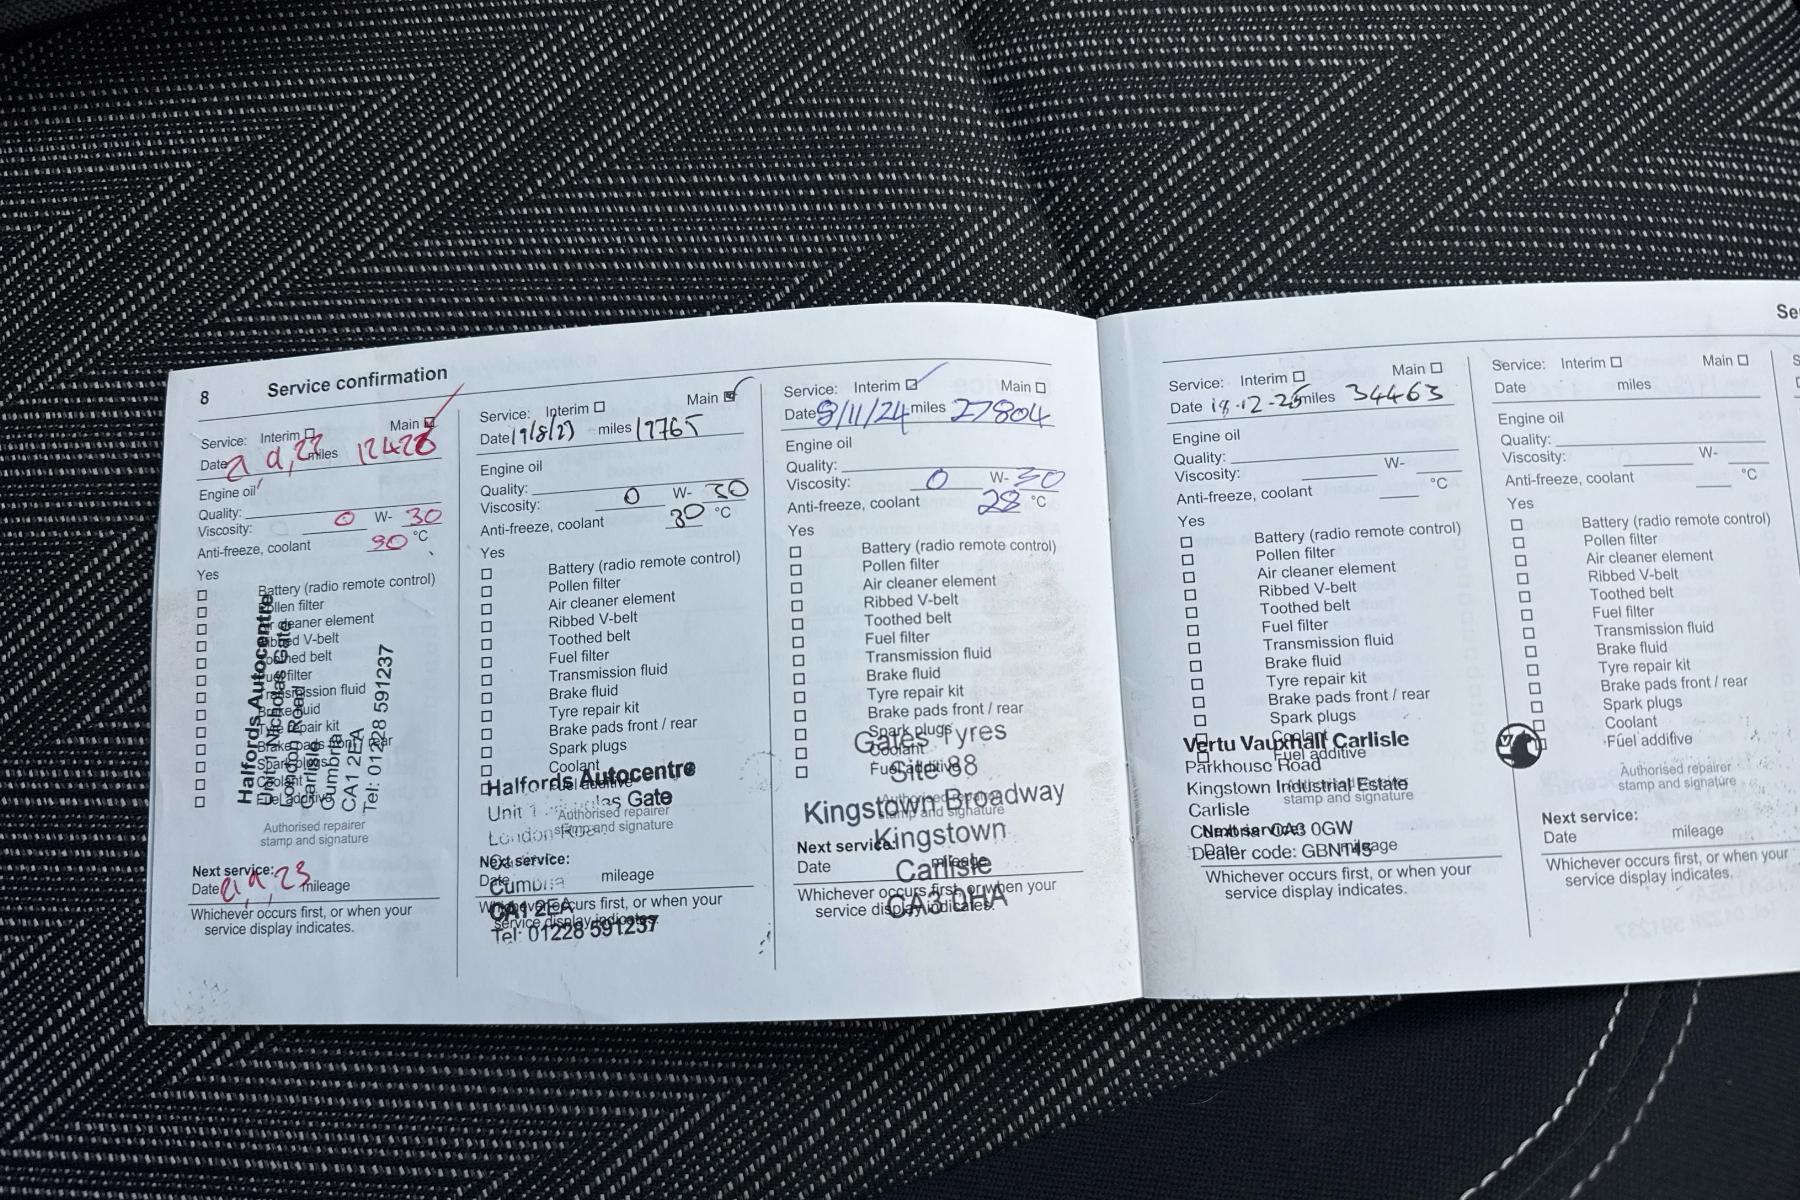 8 Service confirmation
Service: Interim Main
Date miles
Engine oil
Quality:
Viscosity: 0 W- 30
Anti-freeze, coolant °C
Yes
Battery (radio remote control)
Pollen filter
Air cleaner element
Ribbed V-belt
Toothed belt
Fuel filter
Transmission fluid
Brake fluid
Tyre repair kit
Brake pads front / rear
Spark plugs
Coolant
Fuel additive
Halfords Autocentre
Unit 1 Nicholas Gate
London Road
Carlisle
Cumbria
CA1 2EA
Tel: 01228 591237
Authorised repairer
stamp and signature
Next service:
Date mileage
Whichever occurs first, or when your
service display indicates.
Service: Interim Main
Date miles 19765
Engine oil
Quality:
Viscosity: 0 W- 30
Anti-freeze, coolant 30 °C
Yes
Battery (radio remote control)
Pollen filter
Air cleaner element
Ribbed V-belt
Toothed belt
Fuel filter
Transmission fluid
Brake fluid
Tyre repair kit
Brake pads front / rear
Spark plugs
Coolant
Fuel additive
Halfords Autocentre
Unit 1 las Gate
Authorised repairer
London
stamp and signature
Next service:
Date mileage
Cumbria
Whichever occurs first, or when your
CA1 2EA
service display indicates.
Tel: 01228 591237
Service: Interim Main
Date 8/11/24 miles 27804
Engine oil
Quality:
Viscosity: 0 W- 30
Anti-freeze, coolant 28 °C
Yes
Battery (radio remote control)
Pollen filter
Air cleaner element
Ribbed V-belt
Toothed belt
Fuel filter
Transmission fluid
Brake fluid
Tyre repair kit
Brake pads front / rear
Spark plugs
Coolant
Fuel additive
Gates Tyres
Site 88
Authorised repairer
Kingstown Broadway
stamp and signature
Kingstown
Next service:
Date mileage
Carlisle
Whichever occurs first, or when your
CA3 0HA
service display indicates.
Service: Interim Main
Date 18.12.25 miles 34463
Engine oil
Quality:
Viscosity: W-
Anti-freeze, coolant °C
Yes
Battery (radio remote control)
Pollen filter
Air cleaner element
Ribbed V-belt
Toothed belt
Fuel filter
Transmission fluid
Brake fluid
Tyre repair kit
Brake pads front / rear
Spark plugs
Coolant
Fuel additive
Vertu Vauxhall Carlisle
Parkhouse Road
Kingstown Industrial Estate
Carlisle
Cumbria CA3 0GW
Dealer code: GBNT45
Authorised repairer
stamp and signature
Next service:
Date mileage
Whichever occurs first, or when your
service display indicates.
Service: Interim Main
Date miles
Engine oil
Quality:
Viscosity: W-
Anti-freeze, coolant °C
Yes
Battery (radio remote control)
Pollen filter
Air cleaner element
Ribbed V-belt
Toothed belt
Fuel filter
Transmission fluid
Brake fluid
Tyre repair kit
Brake pads front / rear
Spark plugs
Coolant
Fuel additive
Authorised repairer
stamp and signature
Next service:
Date mileage
Whichever occurs first, or when your
service display indicates.